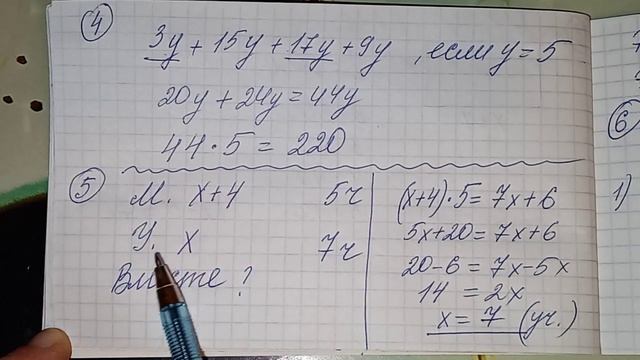 ④
3y + 15y + 17y + 9y , если y = 5
20y + 24y = 44y
44 · 5 = 220
⑤
М. x+4 5ч
У. x 7ч
Вместе ?
(x+4)·5 = 7x+6
5x+20 = 7x+6
20-6 = 7x-5x
14 = 2x
x = 7 (уч.)
⑥
1)